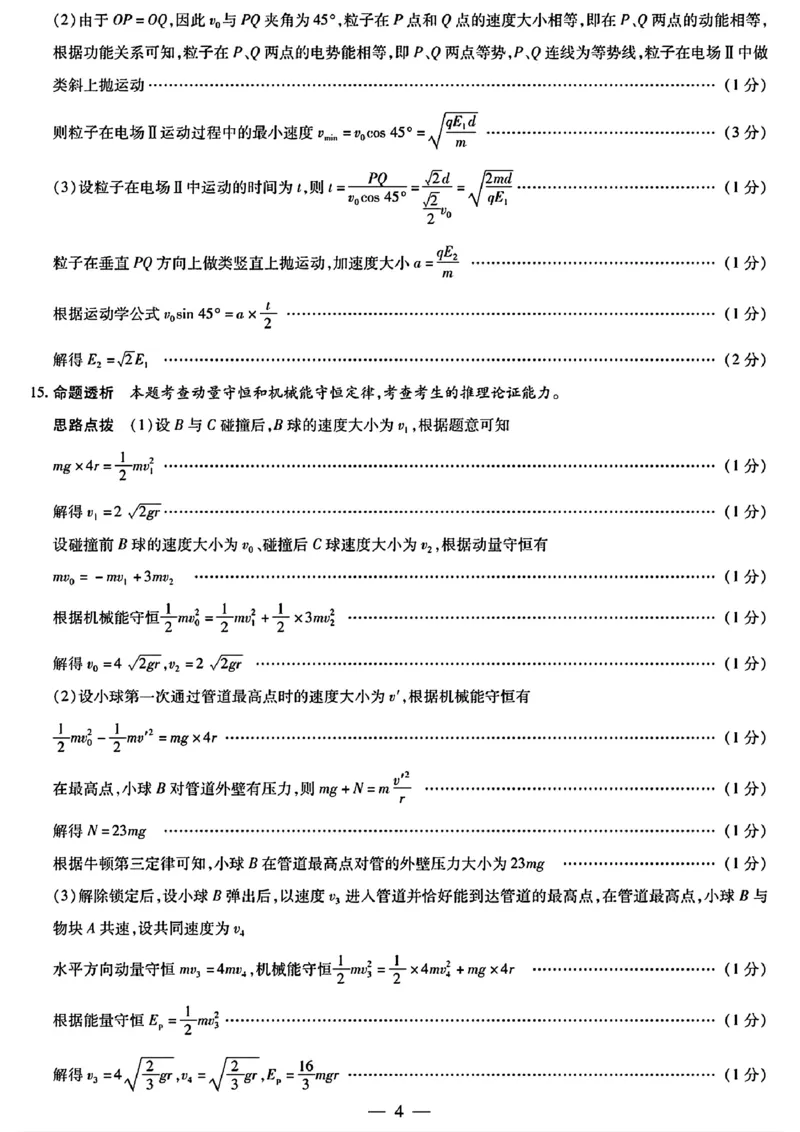 (2)由于 OP=OQ,因此 v₀与 PQ 夹角为45°,粒子在 P 点和 Q 点的速度大小相等,即在 P、Q 两点的动能相等,
根据功能关系可知,粒子在 P、Q 两点的电势能相等,即 P、Q 两点等势,P、Q 连线为等势线,粒子在电场Ⅱ中做
类斜上抛运动 …… (1 分)
则粒子在电场Ⅱ运动过程中的最小速度 v_min = v₀cos 45° = √(qE₁d/m) …… (3 分)
(3)设粒子在电场Ⅱ中运动的时间为 t,则 t = PQ/(v₀cos 45°) = √2d/((√2/2)v₀) = √(2md/(qE₁)) …… (1 分)
粒子在垂直 PQ 方向上做类竖直上抛运动,加速度大小 a = qE₂/m …… (1 分)
根据运动学公式 v₀sin 45° = a × t/2 …… (1 分)
解得 E₂ = √2E₁ …… (2 分)
15. 命题透析 本题考查动量守恒和机械能守恒定律,考查考生的推理论证能力。
思路点拨 (1)设 B 与 C 碰撞后,B 球的速度大小为 v₁,根据题意可知
mg × 4r = 1/2 mv₁² …… (1 分)
解得 v₁ = 2√(2gr) …… (1 分)
设碰撞前 B 球的速度大小为 v₀、碰撞后 C 球速度大小为 v₂,根据动量守恒有
mv₀ = - mv₁ + 3mv₂ …… (1 分)
根据机械能守恒 1/2 mv₀² = 1/2 mv₁² + 1/2 × 3mv₂² …… (1 分)
解得 v₀ = 4√(2gr), v₂ = 2√(2gr) …… (1 分)
(2)设小球第一次通过管道最高点时的速度大小为 v′,根据机械能守恒有
1/2 mv₀² - 1/2 mv′² = mg × 4r …… (1 分)
在最高点,小球 B 对管道外壁有压力,则 mg + N = m v′²/r …… (1 分)
解得 N = 23mg …… (1 分)
根据牛顿第三定律可知,小球 B 在管道最高点对管的外壁压力大小为 23mg …… (1 分)
(3)解除锁定后,设小球 B 弹出后,以速度 v₃ 进人管道并恰好能到达管道的最高点,在管道最高点,小球 B 与
物块 A 共速,设共同速度为 v₄
水平方向动量守恒 mv₃ = 4mv₄,机械能守恒 1/2 mv₃² = 1/2 × 4mv₄² + mg × 4r …… (1 分)
根据能量守恒 Eₚ = 1/2 mv₃² …… (1 分)
解得 v₃ = 4√(2/3 gr), v₄ = √(2/3 gr), Eₚ = 16/3 mgr …… (1 分)
— 4 —